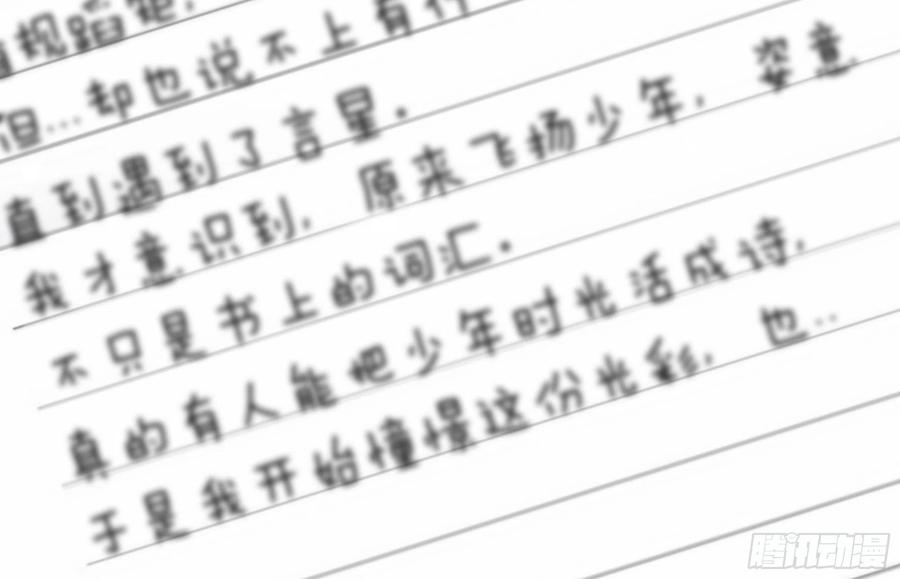 规蹈矩，
但…却也说不上有
直到遇到了言星.
我才意识到，原来飞扬少年，姿意
不只是书上的词汇.
真的有人能把少年时光活成诗，
于是我开始憧憬这份光彩，也…
腾讯动漫